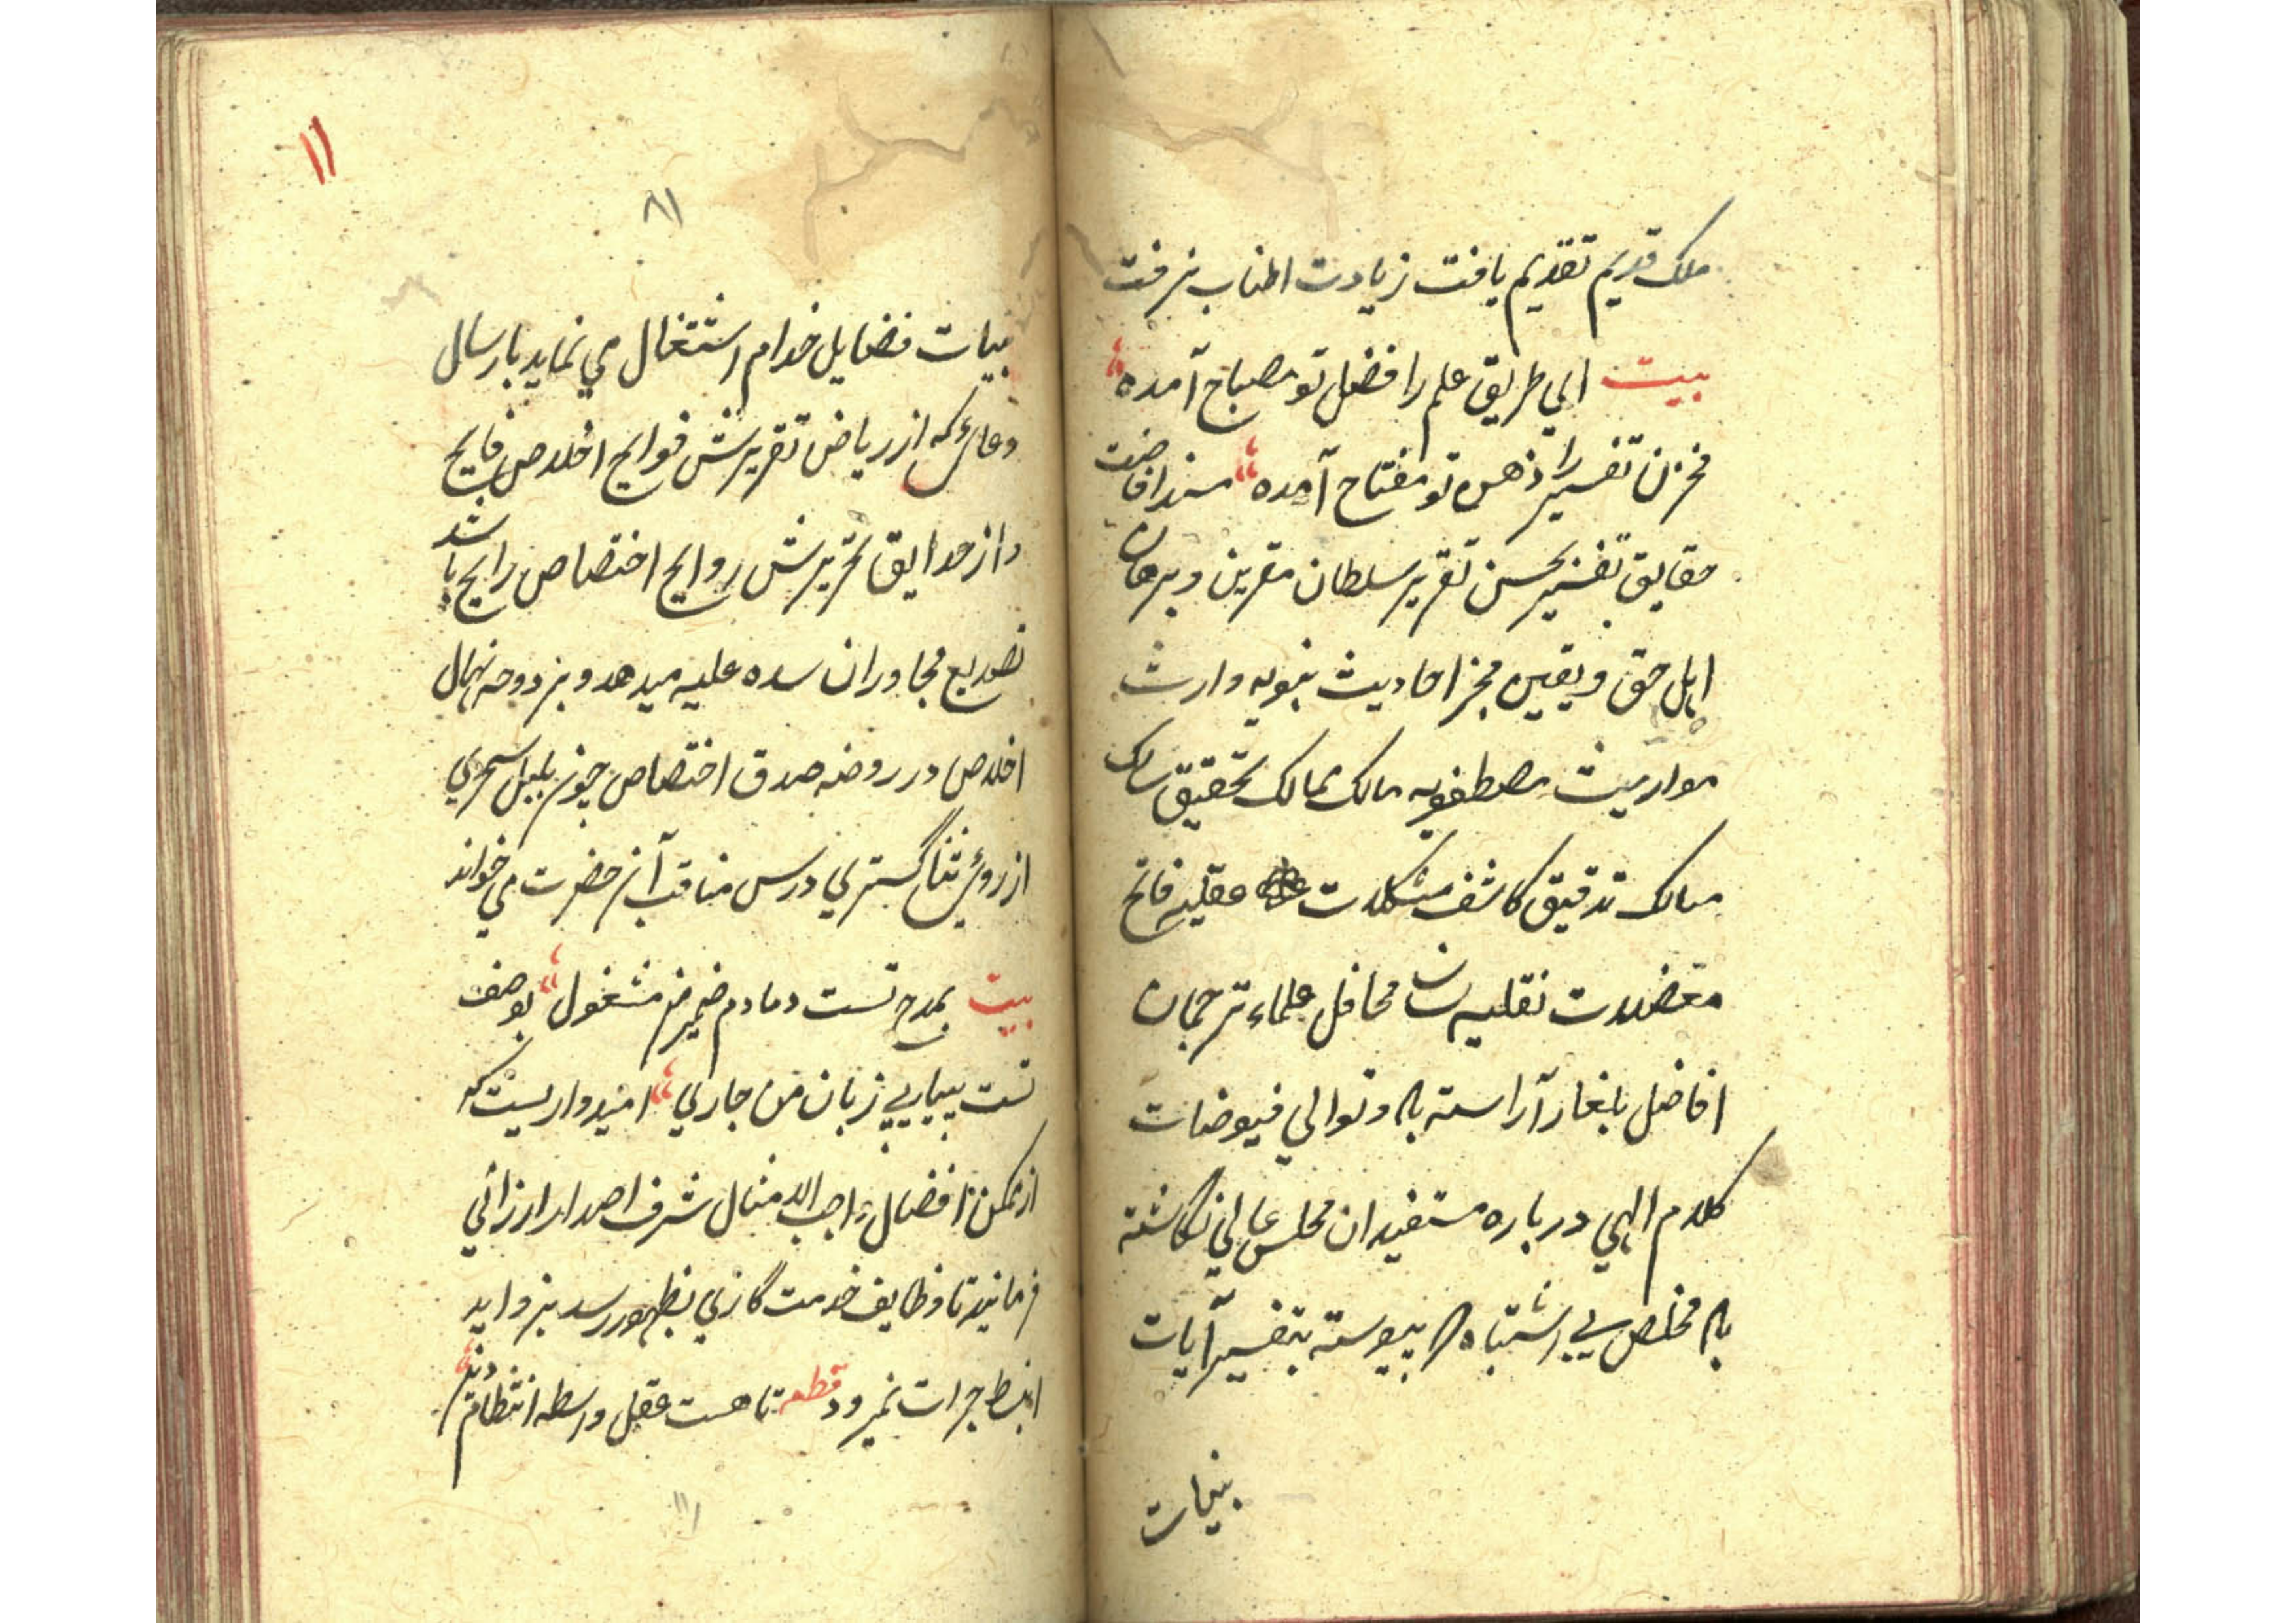 ملک قدیم تقدیم یافت زیادت اطناب نرفت
بیت ای طریق علم را فضل تو مصباح آمده
مخزن تفسیر را ذهن تو مفتاح آمده مسند افاضت
حقایق تفسیر بحسن تقریر سلطان مقرین و برهان
اهل حق و یقین مخبر احادیث نبویه وارث
مواریث مصطفویه مالک ممالک تحقیق سالک
مسالک تدقیق کاشف مشکلات عقلیه فاتح
معضلات نقلیه لسان محافل علماء ترجمان
افاضل بلغا آراسته باد و توالی فیوضات
کلام الهی درباره مستفیدان مجلس عالی نگاشته
باد مخلص بی اشتباه که پیوسته بتفسیر آیات
بینات
۱۱
۸۱
بینات فضایل خدام اشتغال می نماید بارسال
دعائی که از ریاض تقریرش فوایح اخلاص فایح
و از حدایق تحریرش روایح اختصاص رایح باشد
تصدیع مجاوران سده علیه میدهد و بر دوحه نهال
اخلاص در روضه صدق اختصاص چون بلبل سحری
از روی ثنا گستری درس مناقب آن حضرت می خواند
بیت بمدح تست دمادم ضمیر من مشغول بوصف
تست پیاپی زبان من جاری امیدواریست که
از مکمن افضال واجب الامتثال شرف اصدار ارزانی
فرمایند تا وظایف خدمت گاری بظهور رسد بزواید
انبساط جرات نمیرود قطعه تا هست عقل واسطه انتظام